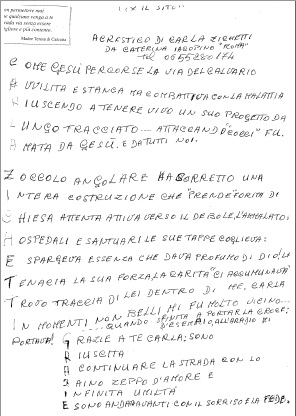 "IX IL SITI"
on permettere mai
se qualcuno venga a te
vada via senza essere
igliore e più contento.
Madre Teresa di Calcutta
ACROSTICO DI CARLA ZICHETTI
DA CATERINA "ROMA"
COME GESÙ PERCORSE LA VIA DEL CALVARIO
AVVILITA E STANCA MA COMBATTIVA CON LA MALATTIA
RIUSCENDO A TENERE VIVO UN SUO PROGETTO DA
LUNGO TRACCIATO... ATTACCANDO "COCCI" FU.
AMATA DA GESÙ. E DA TUTTI NOI.
ZOCCOLO ANGOLARE HA CORRETTO UNA
INTERA COSTRUZIONE CHE "PRENDE" FORMA DI
CHIESA ATTENTA ATTIVA VERSO IL DEBOLE, L'AMMALATO:
HOSPEDALI E SANTUARI LE SUE TAPPE COGLIEVA:
E SPARGEVA ESSENZA CHE DAVA PROFUMO DI DIO. LA
TENACIA LA SUA FORZA, LA CARITÀ "CI ACCUMUNAVA"
TROVO TRACCIA DI LEI DENTRO DI ME, CARLA
IN MOMENTI NON BELLI MI FU MOLTO VICINO...
....QUANDO SFINITA A PORTAR LA CROCE;
PORTAVA D'ESEMPIO, ALLA RADIO MI
GRAZIE A TE CARLA; SONO
RIUSCITA
A CONTINUARE LA STRADA CON LO
ZAINO ZEPPO D'AMORE E
INFINITA UMILTÀ
E SONO ANDATA AVANTI CON IL SORRISO E LA FEDE.